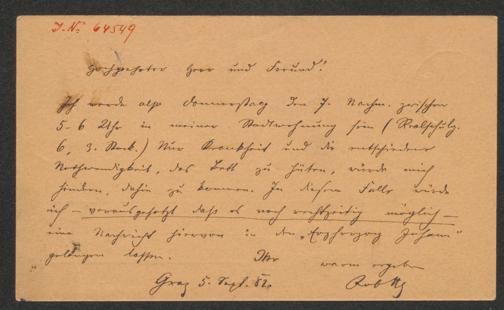 J. No 64549
Hochgeehrter Herr und Freund!
Ich werde also Donnerstag den 7. Nachm. zwischen
5-6 Uhr in meiner Stadtwohnung sein (Realschulg.
6, 3. Stock.) Nur Krankheit und die entschiedene
Nothwendigkeit, das Bett zu hüten, würde mich
hindern, dahin zu kommen. In diesem Falle würde
ich – vorausgesetzt daß es noch rechtzeitig möglich –
eine Nachricht hievon in den „Erzherzog Johann"
gelangen lassen. Ihr
warm ergeben
Graz 5. Sept. 82.